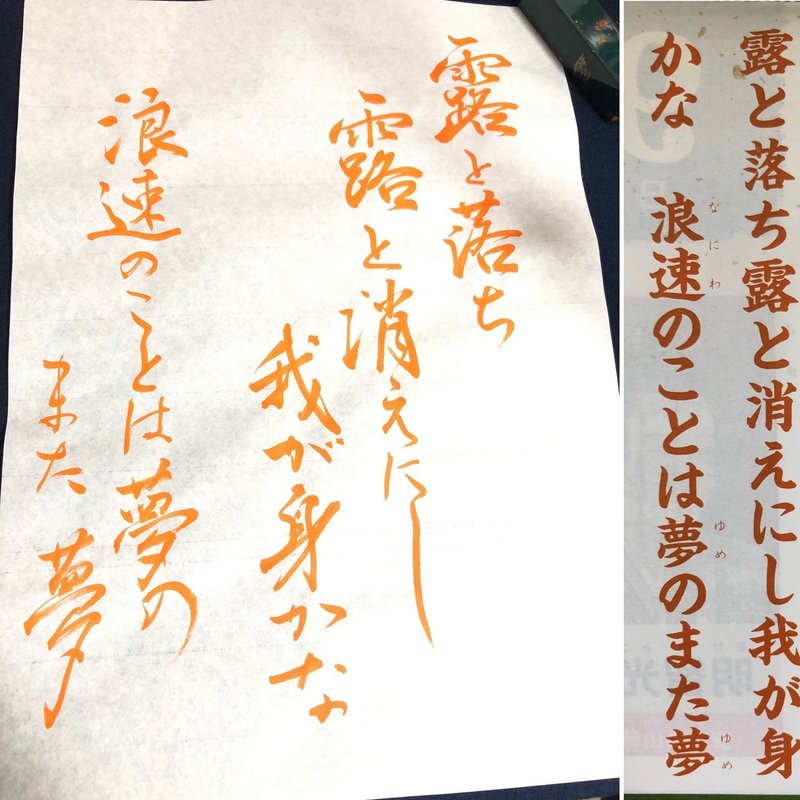 露と落ち
露と消えにし
我が身かな
浪速のことは夢の
また夢
露と落ち露と消えにし我が身
かな 浪速のことは夢のまた夢
なにわ
ゆめ
ゆめ